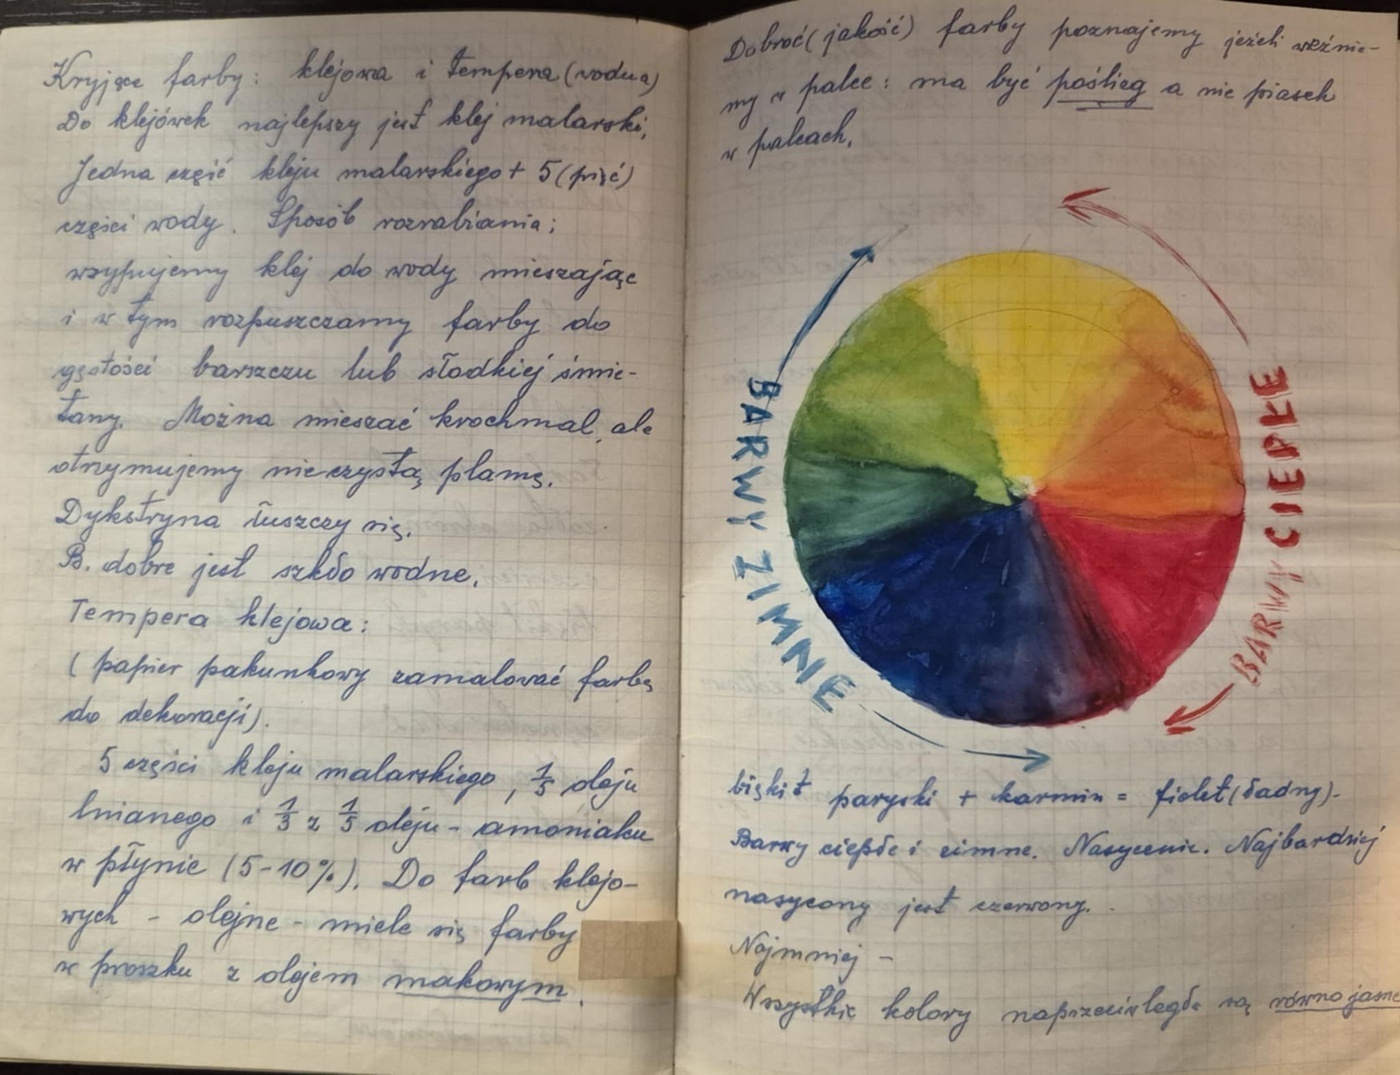 Kryjące farby: klejowa i tempera (wodna)
Do klejówek najlepszy jest klej malarski,
Jedna część kleju malarskiego + 5 (pięć)
części wody. Sposób rozrabiania:
wsypujemy klej do wody mieszając
i w tym rozpuszczamy farby do
gęstości barszczu lub słodkiej śmie-
tany. Można mieszać krochmal, ale
otrzymujemy nieczystą plamę.
Dykstryna łuszczy się.
B. dobre jest szkło wodne.
Tempera klejowa:
(papier pakunkowy zamalować farbą
do dekoracji).
5 części kleju malarskiego, 1/5 oleju
lnianego i 1/3 z 1/5 oleju - amoniaku
w płynie (5-10%). Do farb klejo-
wych - olejne - miele się farby
w proszku z olejem makowym.
Dobroć (jakość) farby poznajemy jeżeli weźmie-
my w palce: ma być poślieg a nie piasek
w palcach.
BARWY ZIMNE
BARWY CIEPŁE
błękit paryski + karmin = fiolet (ładny).
Barwy ciepłe i zimne. Nasycenie. Najbardziej
nasycony jest czerwony.
Najmniej -
Wszystkie kolory naprzeciwległe są równo jasne